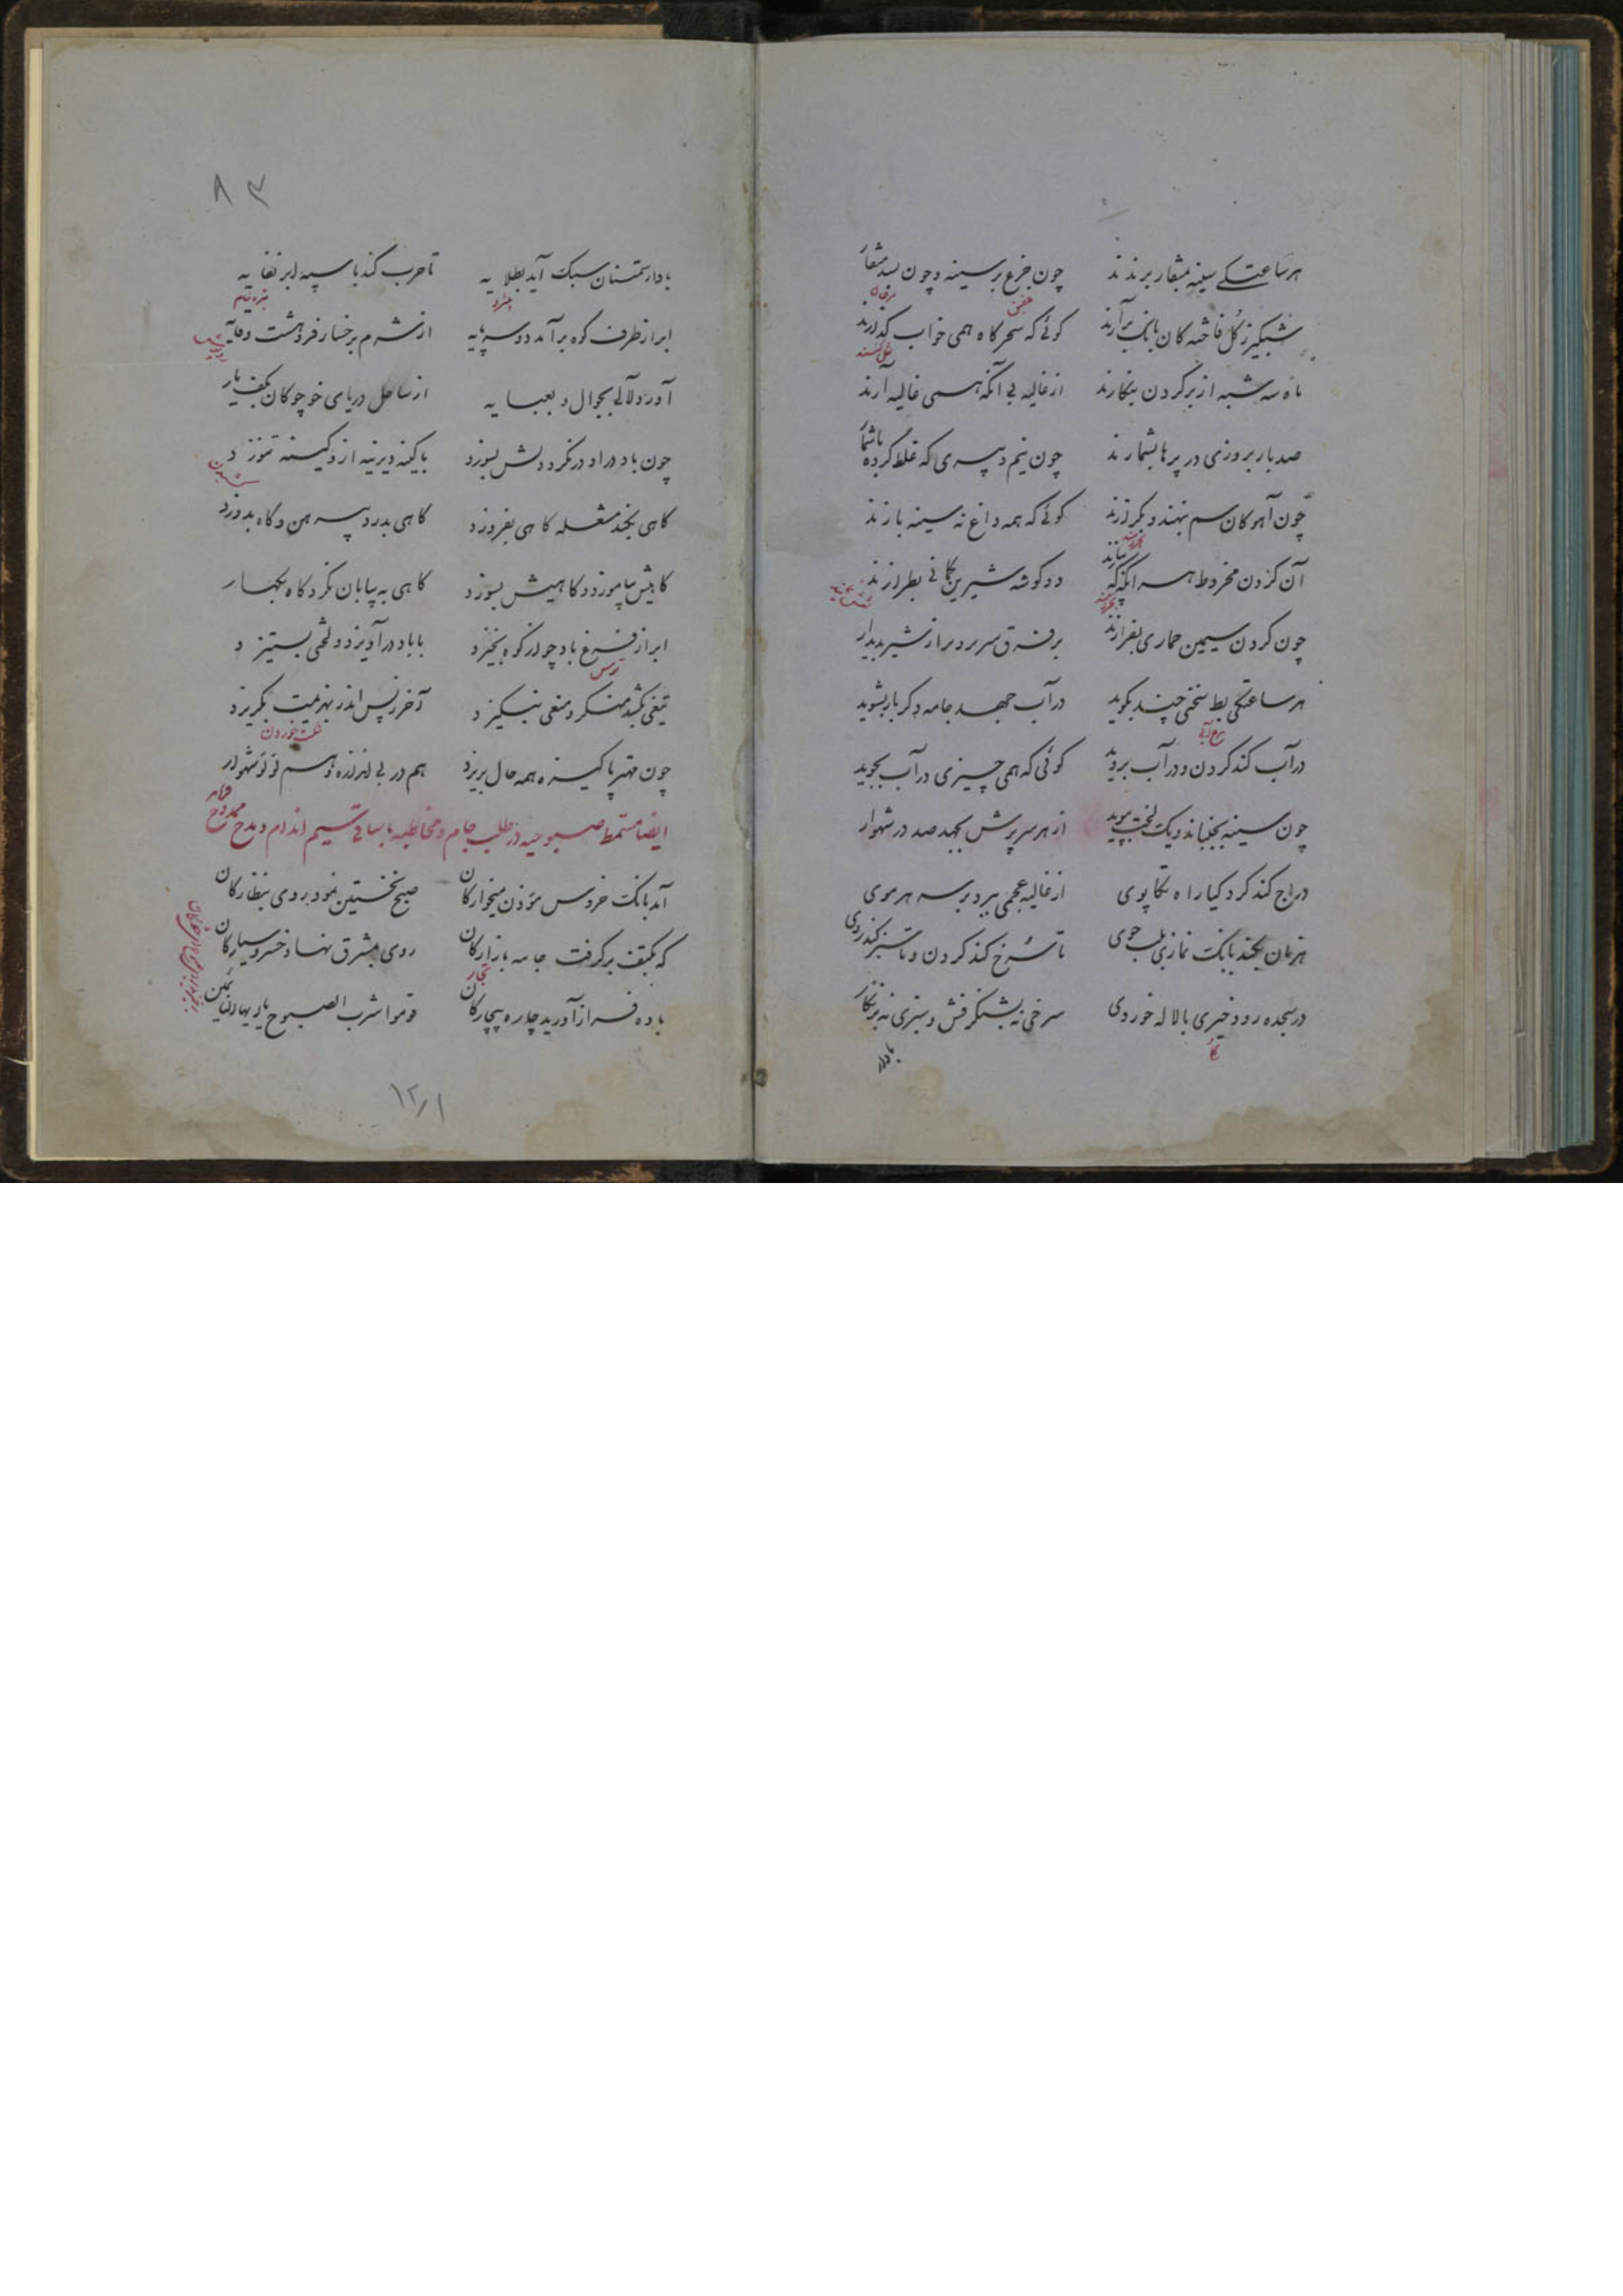 هر ساعتکی سینه بمنقار برندند چون جزع بر سینه و چون بسد منقار
شبگیر ز گل فاختگان بانگ برآرند گوئی که سحرگاه همی خواب گذارند
ماه سه شبه از بر گردن بنگارند از غالیه بی آنکه همی غالیه آرند
صد بار بروزی در پرها بشمارند چون نیم دبیری که غلط کرده باشمار
چون آهوکان سم بنهند و بگرازند گوئی که همه داغ نه سینه بازند
آن گردن مخروط هر آنگه که بیازند دو گوشه شیرین کمانی بطرازند
چون گردن سیمین حماری بفرازند بر فرق سر بر دبر از شیر پدیدار
هر ساعتکی بط سخنی چند بگوید در آب جهد جامه دگر بار بشوید
در آب کند گردن و در آب بروید گوئی که همی چیزی در آب بجوید
چون سینه بجنباند و یک لخت بپوید از هر سر پرش بجهد صد در شهوار
دراج کند گرد گیا راه تکاپوی از غالیه عجمی بر سر هر موی
هزمان بکند بانگ نمازی بلب جوی تا سرخ کند گردن و تا سبز کند روی
در سجده رود خیری با لاله خودروی سرخی نه بشنگرفش و سبزی نه بزنگار
بادار
۸۳
بادار ستمستان سبک آید بطلایه تا حرب کند با سپه ابر نفایه
ابر از طرف کوه برآمد دو سه پایه از شرم برخسار فروهشت وقایه
آورد لآلی بجوال و بعبایه از ساحل دریای خوچوکان بکف یار
چون باد در او درنگرد دلش بسوزد با کینه دیرینه ازو کینه نتوزد
گاهی بکند مشعله گاهی بفروزد گاهی بدرد پیرهن و گاه بدوزد
گاهیش بیاموزد و گاهیش بسوزد گاهی به بیابان نگرد گاه بکهسار
ابر از فزع باد چو از کوه بخیزد با باد درآویزد و لختی بستیزد
تیغی بکشد منکر و میغی بنگیزد آخر ز پس اندر بهزیمت بگریزد
چون مهتر پاکیزه همه حال بریزد هم در بی اندازه و هم لؤلؤ شهوار
ایضا مسمط صبوحیه در طلب جام و مخاطبه با ساقی سیم اندام و مدح ممدوح
آمد بانگ خروس مؤذن میخوارگان صبح نخستین نمود روی بنظارگان
که بکتف برگرفت جامه بازارگان روی بمشرق نهاد خسرو سیارگان
باده فراز آورید چاره بیچارگان قوموا شرب الصبوح یا ایها النائمین
۱۲/۱